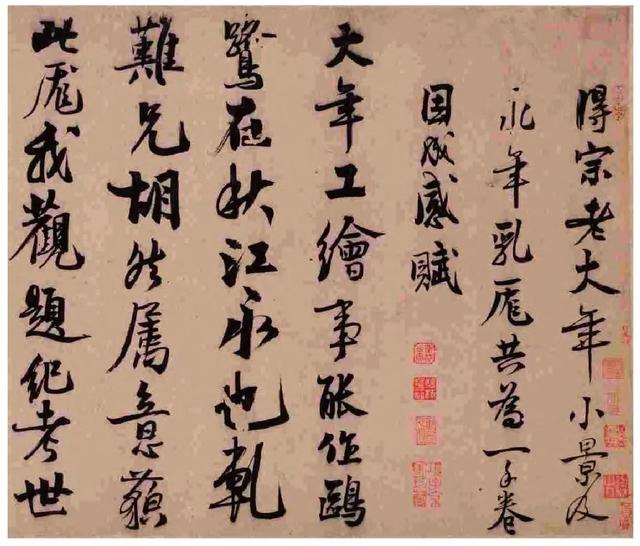 得宗老大年小景及
永年乳厖共為一手卷
因成感賦
大年工繪事能作鷗
鷺在秋江永也孰
難兄胡然属意
此厖我觀題紀考世